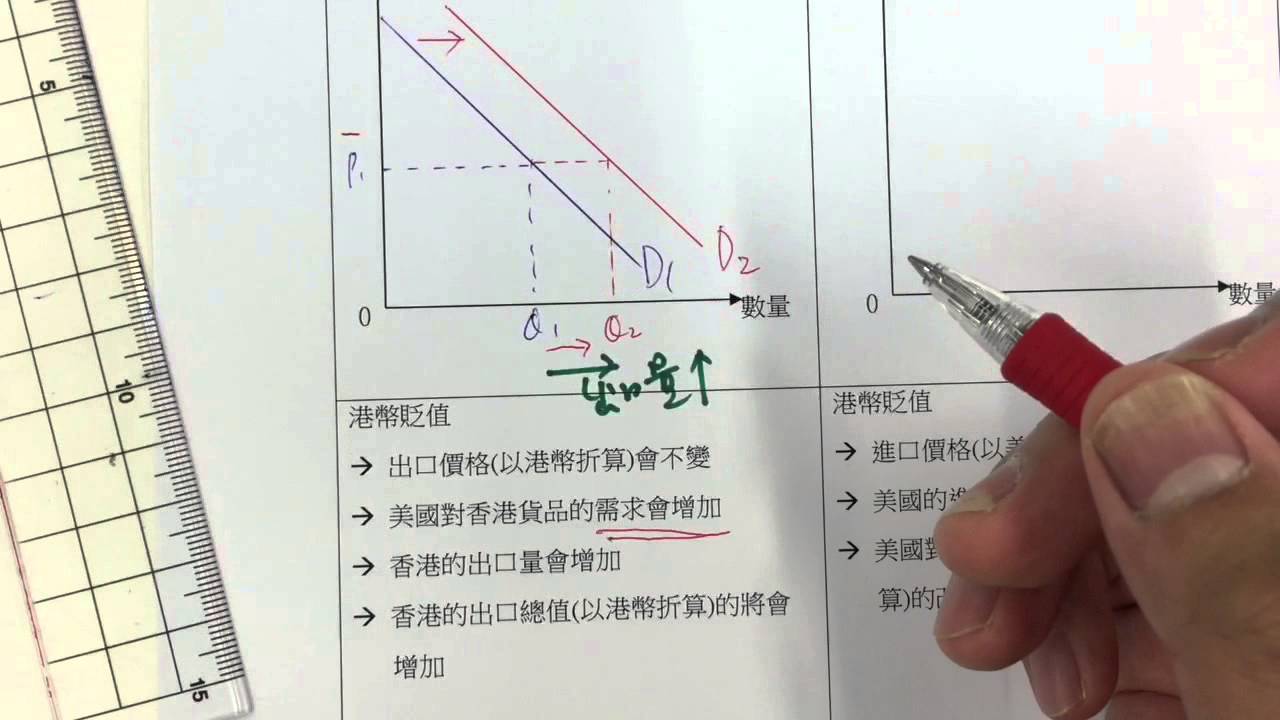 5
10
15
P₁
D₁
D₂
0
數量
Q₁
Q₂
量↑
港幣貶值
→ 出口價格(以港幣折算)會不變
→ 美國對香港貨品的需求會增加
→ 香港的出口量會增加
→ 香港的出口總值(以港幣折算)的將會
增加
0
數量
港幣貶值
→ 進口價格(以美
→ 美國的進
→ 美國對
算)的改